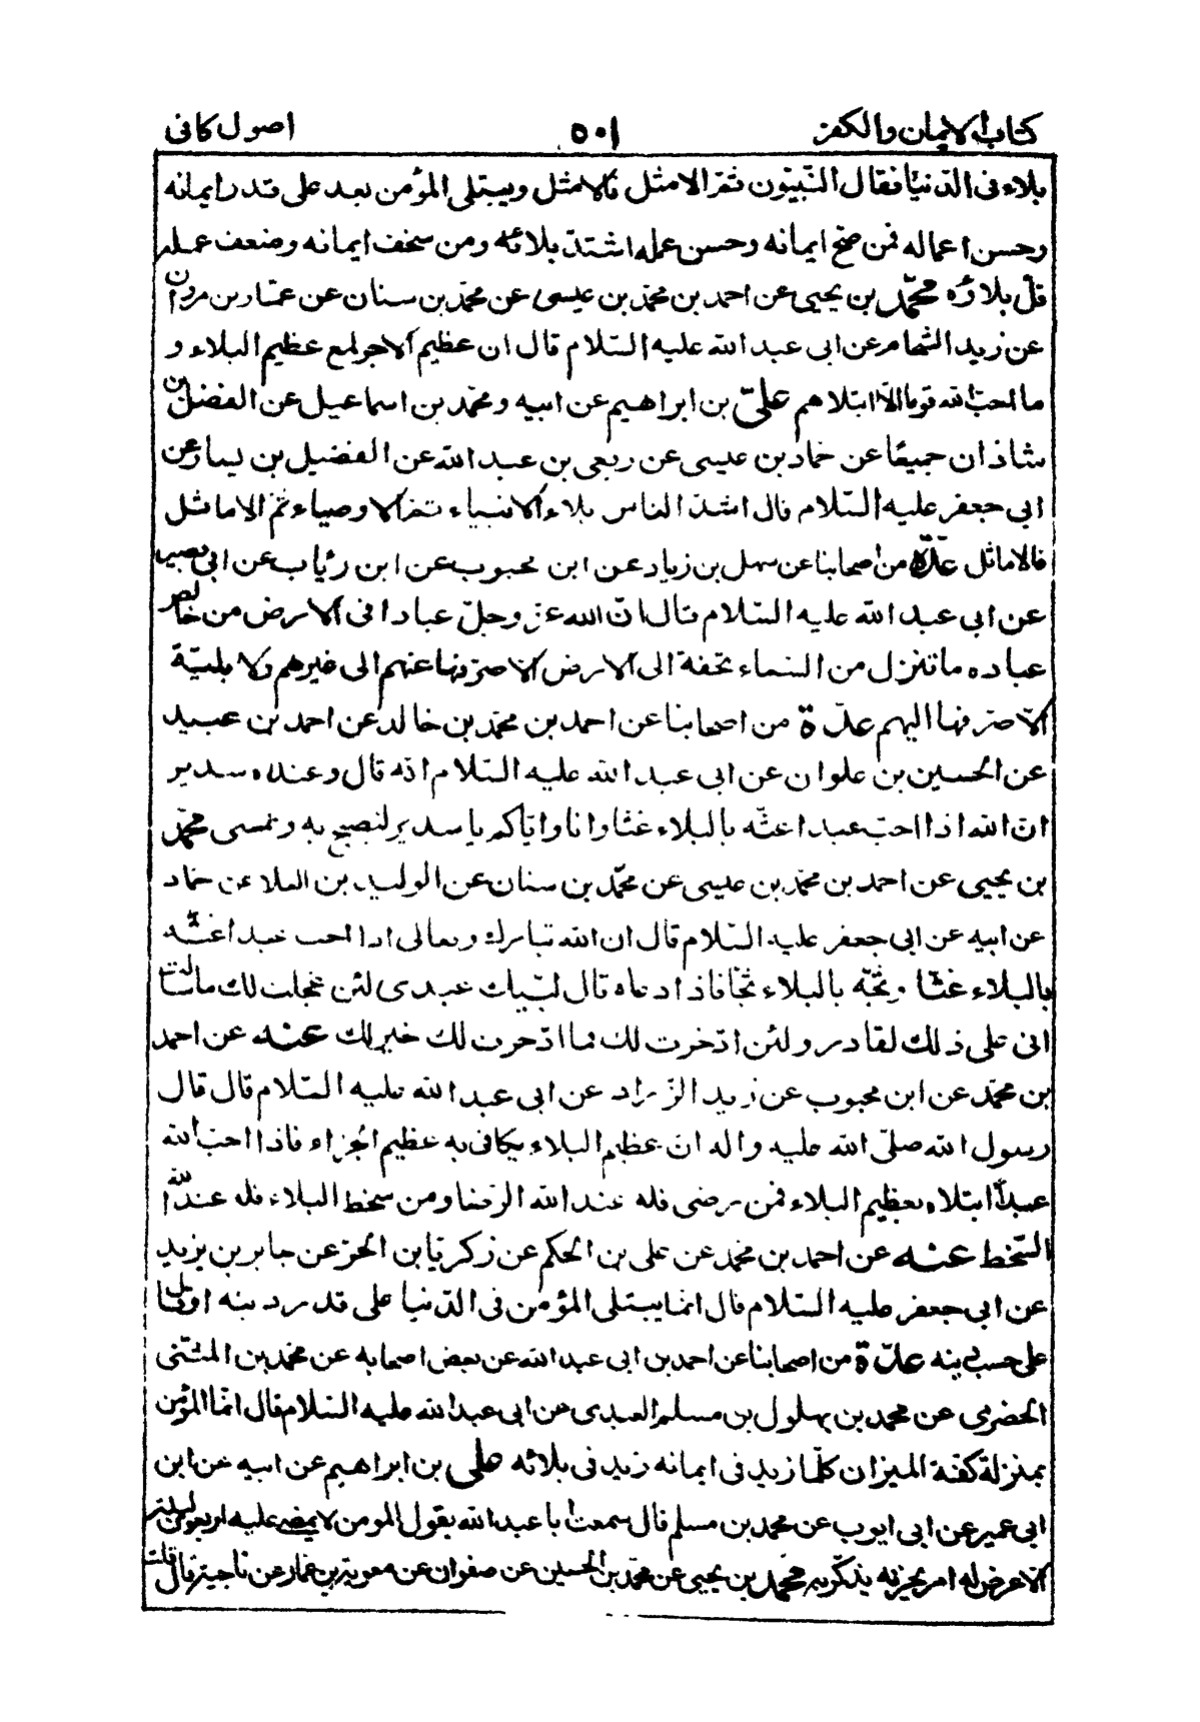 كتاب الايمان والكفر ٥٠١ اصول كافى
بلاء فى الدّنيا فقال النّبيّون ثمّ الامثل فالامثل ويبتلى المؤمن بعد على قدر ايمانه
وحسن اعماله فمن صحّ ايمانه وحسن عمله اشتدّ بلائه ومن سخف ايمانه وضعف عمله
قلّ بلاؤه محمّد بن يحيى عن احمد بن محمّد بن عيسى عن محمّد بن سنان عن عمّار بن مروان
عن زيد الشّحام عن ابى عبد الله عليه السّلام قال ان عظيم الاجر لمع عظيم البلاء و
ما احبّ الله قوما الّا ابتلاهم علىّ بن ابراهيم عن ابيه ومحمّد بن اسماعيل عن الفضل بن
شاذان جميعًا عن حمّاد بن عيسى عن ربعى بن عبد الله عن الفضيل بن يسار عن
ابى جعفر عليه السّلام قال اشدّ الناس بلاء الانبياء ثمّ الاوصياء ثمّ الاماثل
فالاماثل عدّة من اصحابنا عن سهل بن زياد عن ابن محبوب عن ابن رئاب عن ابى بصير
عن ابى عبد الله عليه السّلام قال انّ الله عزّ وجلّ عبادا فى الارض من خالص
عباده ما تنزل من السّماء تحفة الى الارض الّا صرفها عنهم الى غيرهم ولا بليّة
الّا صرفها اليهم عدّة من اصحابنا عن احمد بن محمّد بن خالد عن احمد بن عبيد
عن الحسين بن علوان عن ابى عبد الله عليه السّلام انّه قال وعنده سدير
انّ الله اذا احبّ عبدا غثّه بالبلاء غثّا وانا وايّاكم يا سدير لنصبح به ونمسى محمّد
بن يحيى عن احمد بن محمّد بن عيسى عن محمّد بن سنان عن الوليد بن العلا عن حمّاد
عن ابيه عن ابى جعفر عليه السّلام قال ان الله تبارك وتعالى اذا احب عبدا غثّه
بالبلاء غثّا وثجّه بالبلاء ثجّا فاذا دعاه قال لبّيك عبدى لئن عجلت لك ما سألت
انى على ذلك لقادر ولئن ادّخرت لك فما ادّخرت لك خير لك عنه عن احمد
بن محمّد عن ابن محبوب عن زيد الزّراد عن ابى عبد الله عليه السّلام قال قال
رسول الله صلّى الله عليه واله انّ عظيم البلاء يكافى به عظيم الجزاء فاذا احبّ الله
عبدًا ابتلاه بعظيم البلاء فمن رضى فله عند الله الرّضا ومن سخط البلاء فله عند الله
السّخط عنه عن احمد بن محمد عن على بن الحكم عن زكريّا بن الحرّ عن جابر بن يزيد
عن ابى جعفر عليه السّلام قال انّما يبتلى المؤمن فى الدّنيا على قدر دينه او قال
على حسب دينه عدّة من اصحابنا عن احمد بن ابى عبد الله عن بعض اصحابه عن محمّد بن المثنّى
الحضرمى عن محمد بن بهلول بن مسلم العبدى عن ابى عبد الله عليه السّلام قال انّما المؤمن
بمنزلة كفّة الميزان كلّما زيد فى ايمانه زيد فى بلائه على بن ابراهيم عن ابيه عن ابن
ابى عمير عن ابى ايوب عن محمد بن مسلم قال سمعت ابا عبد الله يقول المومن لا يمضى عليه اربعون ليلة
الّا عرض له امر يحزنه يذكّر به محمّد بن يحيى عن محمّد بن الحسين عن صفوان عن معوية بن عمّار عن ناجية قال قلت